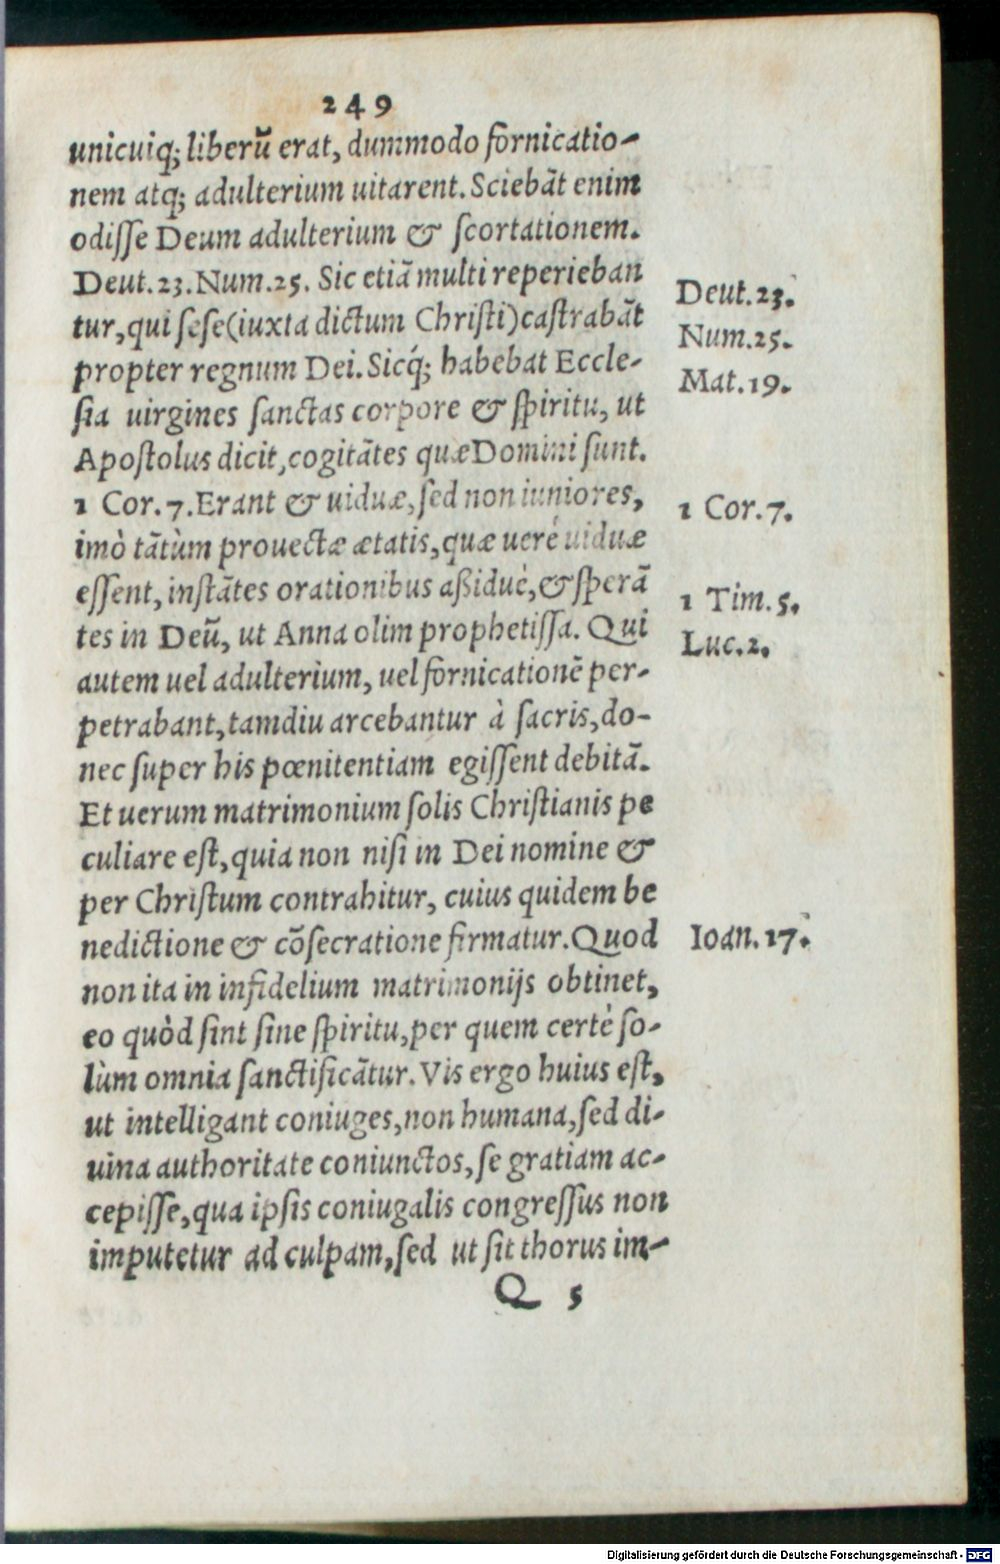 249
unicuiq; liberũ erat, dummodo fornicatio-
nem atq; adulterium uitarent. Sciebāt enim
odisse Deum adulterium & scortationem.
Deut. 23. Num. 25. Sic etiā multi reperieban
tur, qui sese (iuxta dictum Christi) castrabāt
propter regnum Dei. Sicq́; habebat Eccle-
sia uirgines sanctas corpore & spiritu, ut
Apostolus dicit, cogitātes quæ Domini sunt.
1 Cor. 7. Erant & uiduæ, sed non iuniores,
imò tātùm prouectæ ætatis, quæ ueré uiduæ
essent, instātes orationibus aßiduè, & sperā
tes in Deũ, ut Anna olim prophetissa. Qui
autem uel adulterium, uel fornicationē per-
petrabant, tamdiu arcebantur à sacris, do-
nec super his pœnitentiam egissent debitā.
Et uerum matrimonium solis Christianis pe
culiare est, quia non nisi in Dei nomine &
per Christum contrahitur, cuius quidem be
nedictione & cōsecratione firmatur. Quod
non ita in infidelium matrimonijs obtinet,
eo quòd sint sine spiritu, per quem certè so-
lùm omnia sanctificātur. Vis ergo huius est,
ut intelligant coniuges, non humana, sed di-
uina authoritate coniunctos, se gratiam ac-
cepisse, qua ipsis coniugalis congressus non
imputetur ad culpam, sed ut sit thorus im-
Q 5
Deut. 23.
Num. 25.
Mat. 19.
1 Cor. 7.
1 Tim. 5.
Luc. 2.
Ioan. 17.
Digitalisierung gefördert durch die Deutsche Forschungsgemeinschaft - DFG